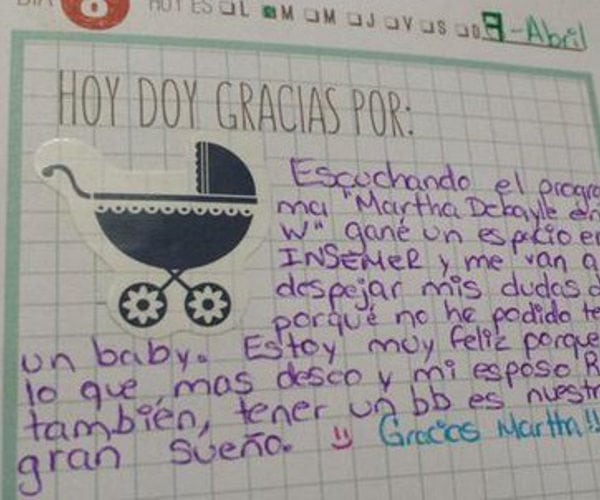 DIA 8 HOY ES L M M J V S D 9-Abril
HOY DOY GRACIAS POR:
Escuchando el progra
ma "Martha Debayle en
W" gané un espacio en
INSEMER y me van a
despejar mis dudas d
porqué no he podido te
un baby. Estoy muy feliz porque
lo que mas deseo y mi esposo R
también, tener un bb es nuestr
gran sueño. Gracias Martha!!